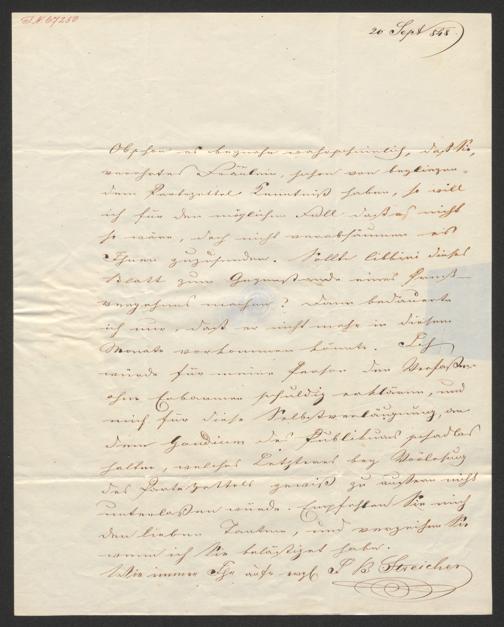 I.N. 67250
20 Sept 848
Obschon es beynahe wahrscheinlich, daß Sie,
verehrtes Fräulein, schon von beyliegen-
dem Partezettel Kenntniß haben, so will
ich für den möglichen Fall daß es nicht
so wäre, doch nicht verabsäumen es
Ihnen zuzusenden. Sollte dieses
Blatt zum Gegenstande eines Preß-
vergehens machen? Dann bedauerte
ich nur, daß er nicht mehr in diesem
Monate vorkommen könnte. Ich
würde für meine Person den Verfasser
ohne Erbarmen schuldig erklären, und
mich für diese Selbstverläugnung, an
dem Gaudium des Publikums schadlos
halten, welches Letzteres bey Vorlesung
des Partezettels gewiß zu äussern nicht
unterlaßen würde. Empfehlen Sie mich
den lieben Tanten, und verzeihen Sie
wenn ich Sie belästiget habe.
Wie immer Ihr J B Streicher